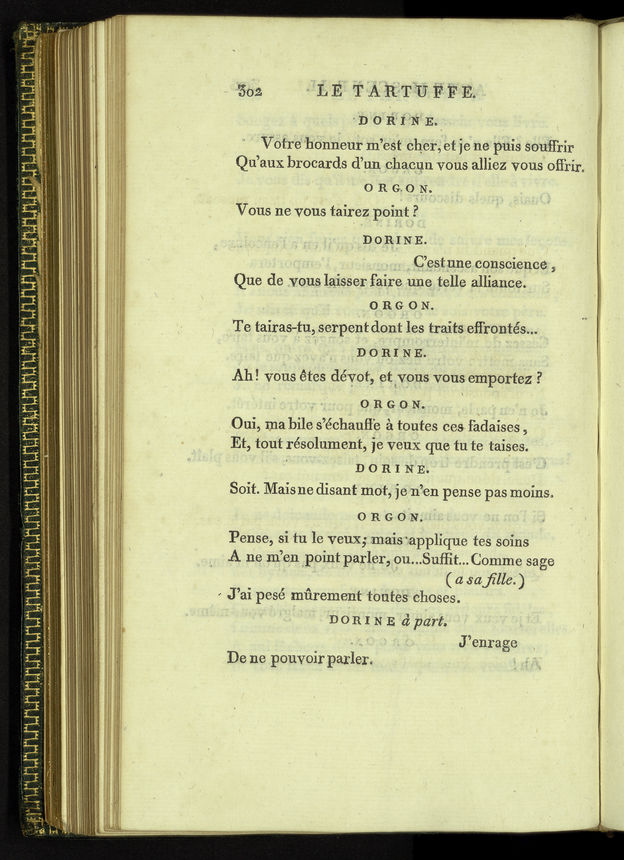 302 LE TARTUFFE.
DORINE.
Votre honneur m'est cher, et je ne puis souffrir
Qu'aux brocards d'un chacun vous alliez vous offrir.
ORGON.
Vous ne vous tairez point ?
DORINE.
C'est une conscience,
Que de vous laisser faire une telle alliance.
ORGON.
Te tairas-tu, serpent dont les traits effrontés...
DORINE.
Ah! vous êtes dévot, et vous vous emportez ?
ORGON.
Oui, ma bile s'échauffe à toutes ces fadaises,
Et, tout résolument, je veux que tu te taises.
DORINE.
Soit. Mais ne disant mot, je n'en pense pas moins.
ORGON.
Pense, si tu le veux; mais applique tes soins
A ne m'en point parler, ou...Suffit...Comme sage
(a sa fille.)
J'ai pesé mûrement toutes choses.
DORINE à part.
J'enrage
De ne pouvoir parler.